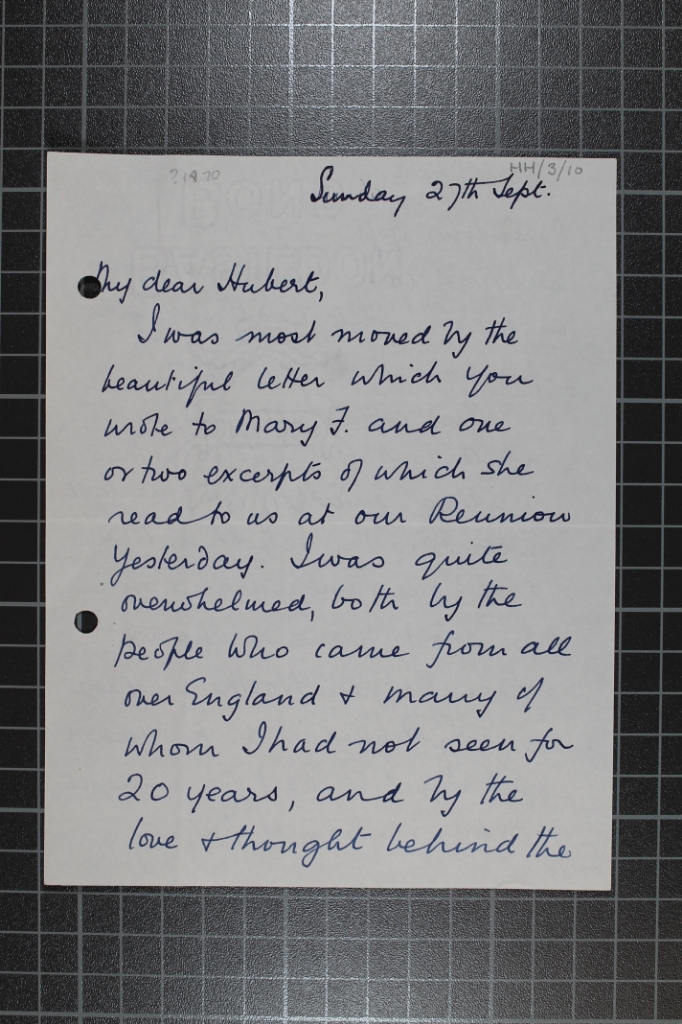 ?1970
HH/3/10
Sunday 27th Sept.
My dear Hubert,
I was most moved by the
beautiful letter which you
wrote to Mary F. and one
or two excerpts of which she
read to us at our Reunion
Yesterday. I was quite
overwhelmed, both by the
people who came from all
over England & many of
whom I had not seen for
20 years, and by the
love & thought behind the